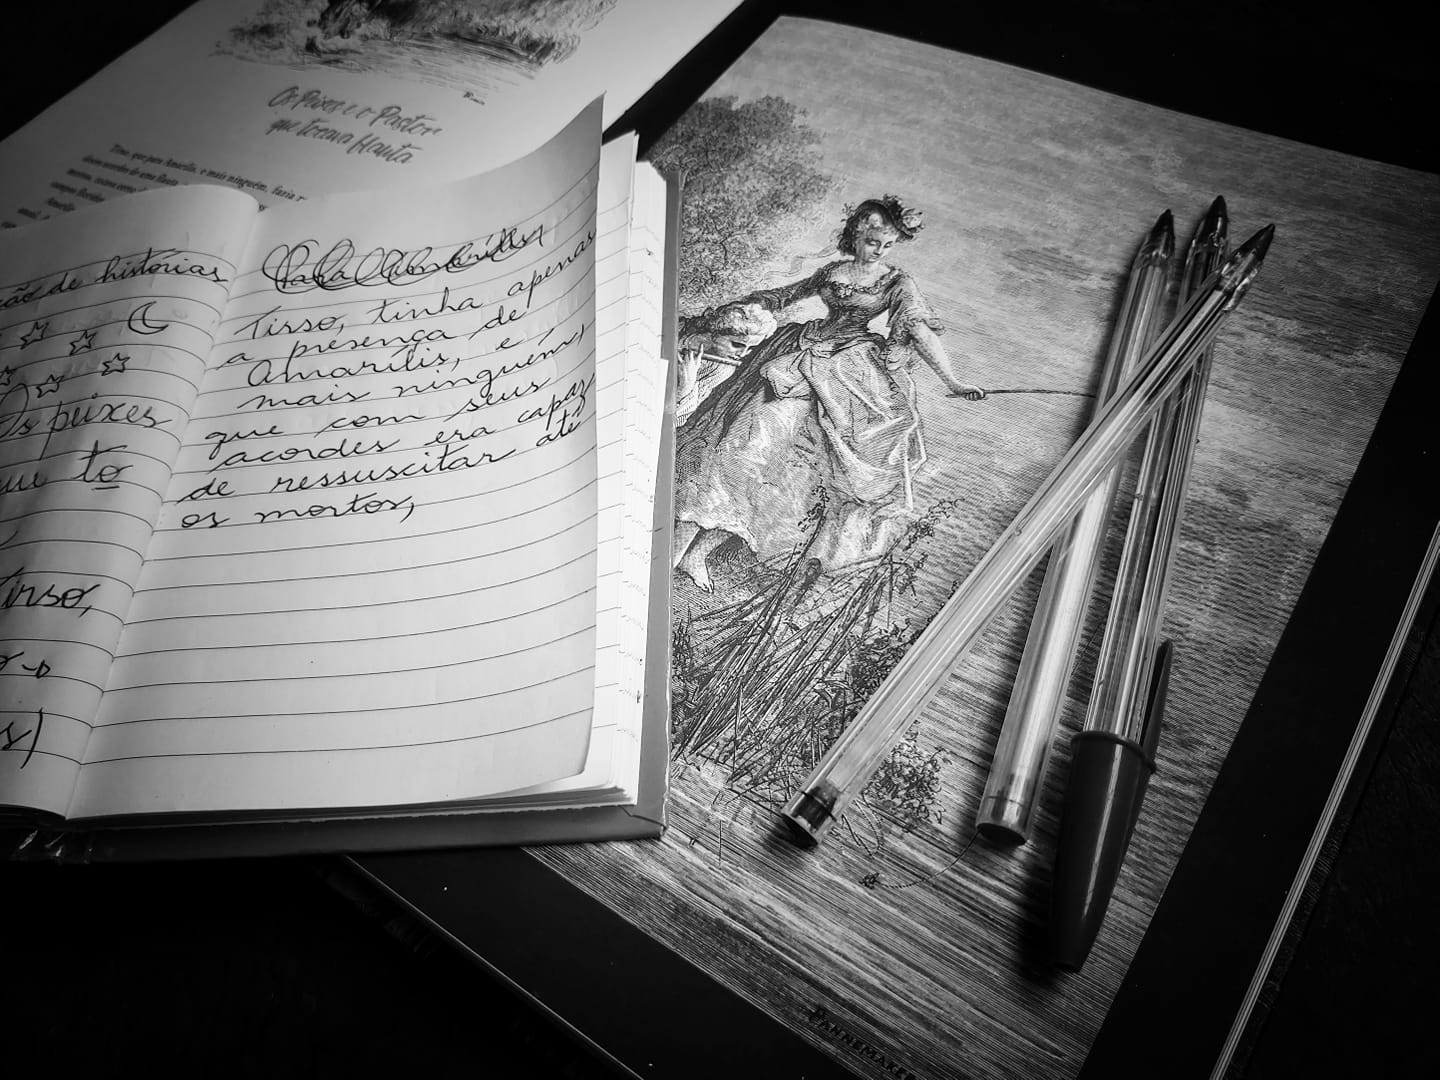 Os Peixes e o Pastor
que tocava flauta
Tirso, que para Amarílis, e mais ninguém, fazia
ção de histórias
Os peixes
ue to
Tirso,
s)
Tirso, tinha apenas
a presença de
Amarílis, e
mais ninguém,
que com seus
acordes era capaz
de ressuscitar até
os mortos,
PANNEMAKER